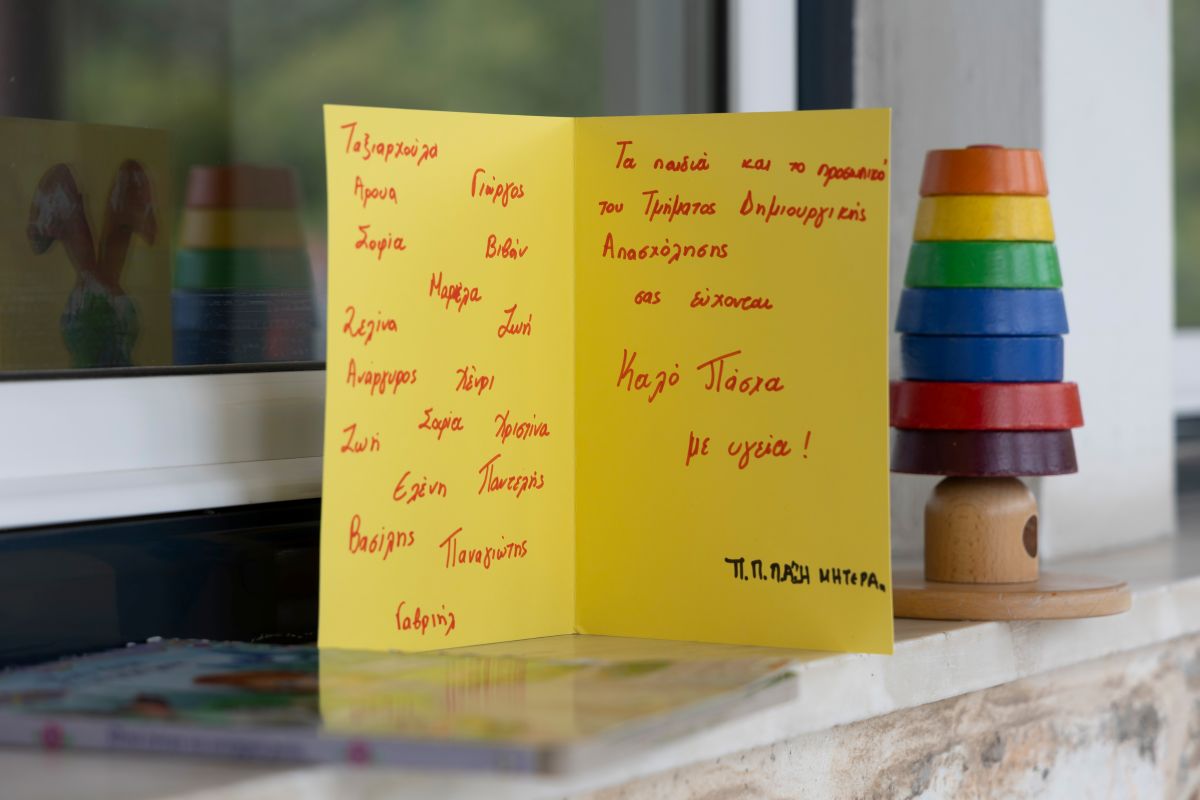 Ταξιαρχούλα
Αρουα Γιώργος
Σοφία Βιβάν
Μαριέλα
Σελίνα Ζωή
Ανάργυρος Χένρι
Ζωή Σοφία Χριστίνα
Ελένη Παντελής
Βασίλης Παναγιώτης
Γαβριήλ
Τα παιδιά και το προσωπικό
του Τμήματος Δημιουργικής
Απασχόλησης
σας εύχονται
Καλό Πάσχα
με υγεία!
Π.Π. ΠΑΖΗ ΜΗΤΕΡΑ.